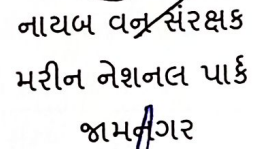 નાયબ વન સંરક્ષક
મરીન નેશનલ પાર્ક
જામનગર